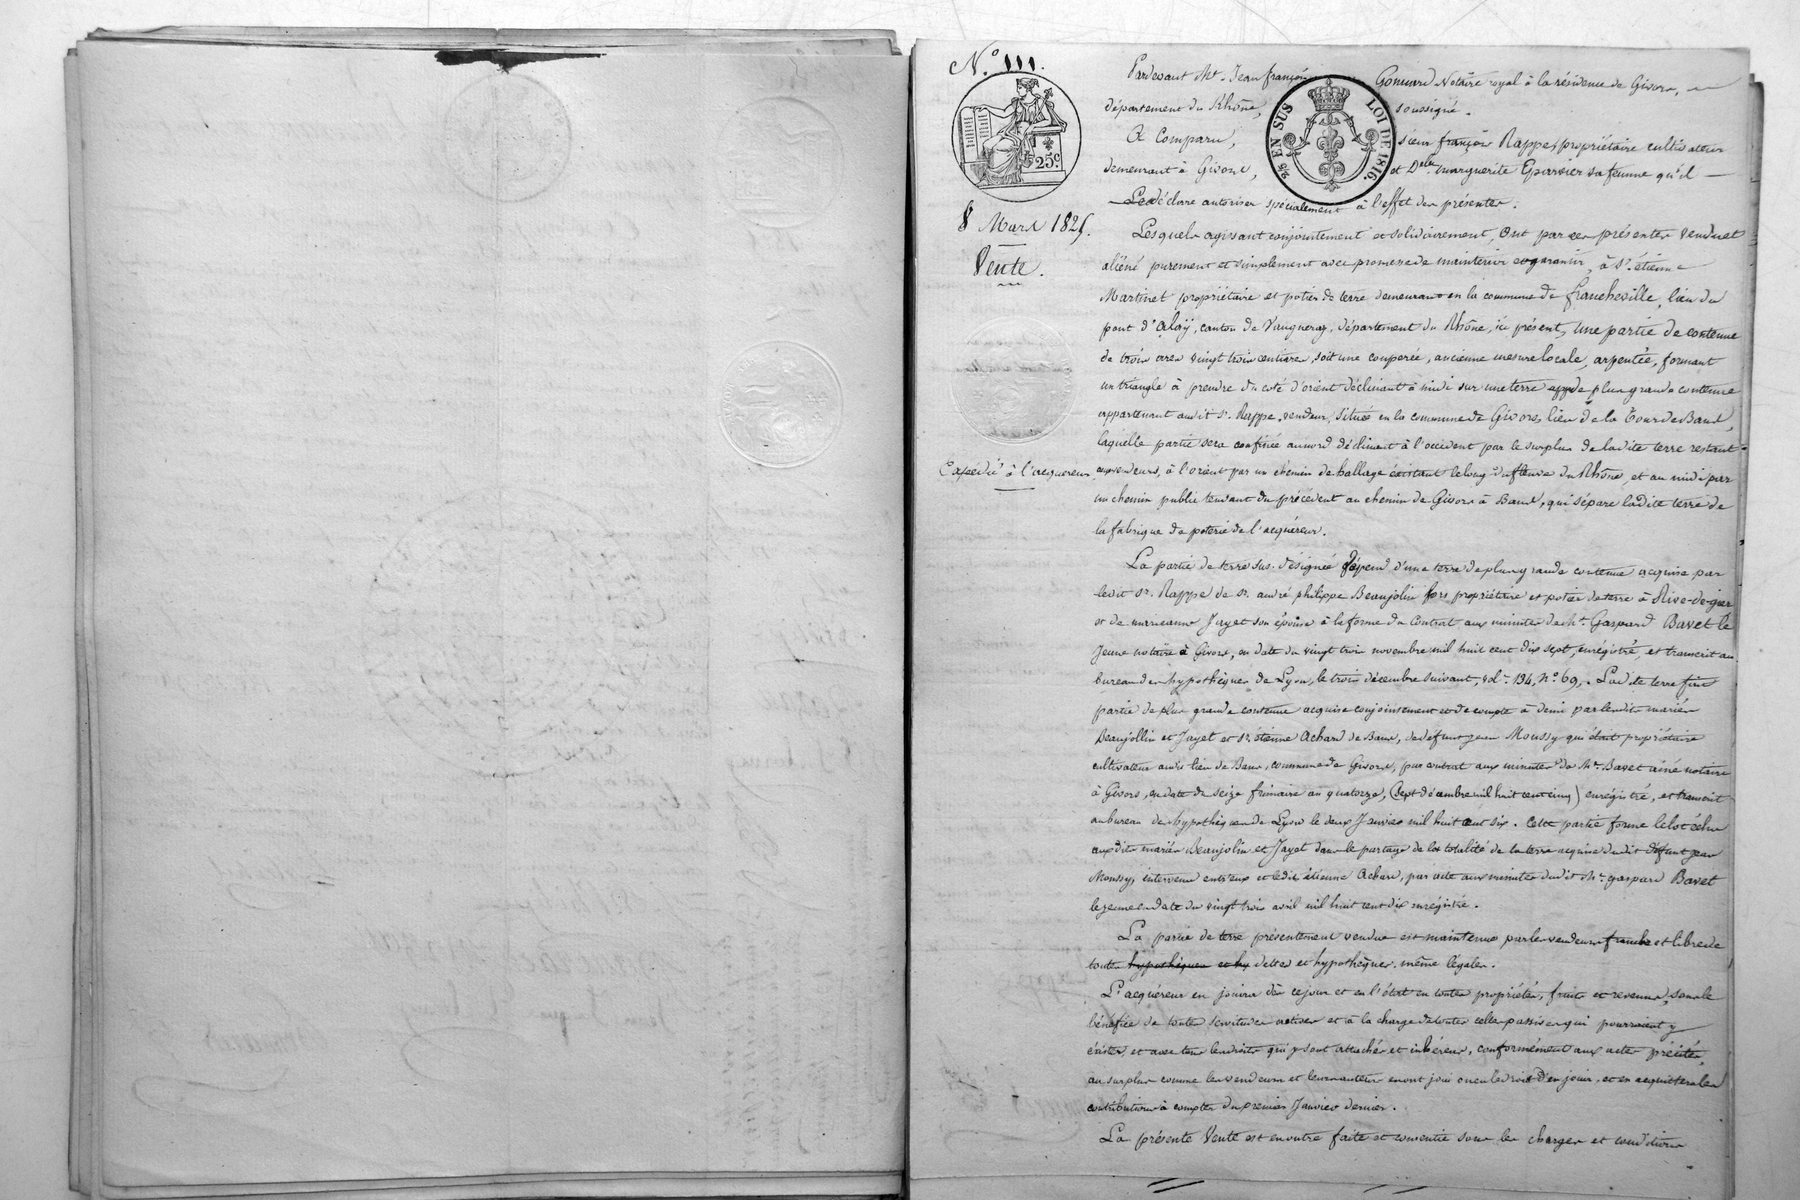 N.º 111.
25.c
2/5 EN SUS
LOI DE 1816.
8 Mars 1825.
Vente.
Expédié à l'acquéreur
Pardevant Me. Jean françois Gonnard Notaire royal à la résidence de Givors,
département du Rhône, soussigné.
A Comparu, sieur françois Rappe, propriétaire cultivateur
demeurant à Givors, et Delle. marguerite Eparvier sa femme qu'il
déclare autoriser spécialement à l'effet des présentes.
Lesquels agissant conjointement et solidairement, Ont par ces présentes vendu et
aliéné purement et simplement avec promesse de maintenir et garantir, à Sr. étienne
Martinet propriétaire et potier de terre demeurant en la commune de francheville, lieu du
pont d'alaÿ, canton de Vaugneray, département du Rhône, ici présent, une partie de contenue
de trois ares vingt trois centiares, soit une couperée, ancienne mesure locale, arpentée, formant
un triangle à prendre du coté d'orient déclinant à midi sur une terre de plus grande contenue
appartenant audit Sr. Rappe, vendeur, située en la commune de Givors, lieu de la Tour de Bans,
laquelle partie sera confinée au nord déclinant à l'occident par le surplus de ladite terre restant
aux vendeurs, à l'orient par un chemin de hallage existant le long du fleuve du Rhône, et au midi par
un chemin public tendant du précédent au chemin de Givors à Bans, qui sépare ladite terre de
la fabrique de poterie de l'acquéreur.
La partie de terre sus-désignée dépend d'une terre de plus grande contenue acquise par
ledit Sr. Rappe de Sr. andré philippe Beaujolin fors propriétaire et potier de terre à Rive-de-gier
et de marianne Jayet son épouse à la forme du Contrat aux minutes de Me. Gaspard Bavet le
Jeune notaire à Givors, en date du vingt trois novembre mil huit cent dix sept, enrégistré, et transcrit au
bureau des hypothèques de Lyon, le trois décembre suivant, vol. 194, Nº 69. Ladite terre fait
partie de plus grande contenue acquise conjointement et de compte à demi par lesdits mariés
Beaujollin et Jayet et Sr. étienne Achard de Bans, de défunt jean Moussy qui était propriétaire
cultivateur audit lieu de Bans, commune de Givors, par contrat aux minutes de Me. Bavet aîné notaire
à Givors, en date du seize frimaire an quatorze, (sept décembre mil huit cent cinq) enrégistré, et transcrit
au bureau des hypothèques de Lyon le deux Janvier mil huit cent six. Cette partie forme le lot échu
auxdits mariés Beaujolin et Jayet dans le partage de la totalité de la terre acquise dudit défunt jean
Moussy, intervenu entr'eux et ledit étienne Achard, par acte aux minutes dudit Me. gaspard Bavet
le jeune en date du vingt trois avril mil huit cent dix enrégistré.
La partie de terre présentement vendue est maintenue par les vendeurs franche et libre de
toutes hypothèques et hy dettes et hypothèques, même légales.
L'acquéreur en jouira dès ce jour et en l'état en toutes propriétés, fruits et revenus, sous le
bénéfice de toutes servitudes actives et à la charge de toutes celles passives qui pourraient y
éxister, et avec tous les droits qui y sont attachés et inhérens, conformément aux actes précités,
au surplus comme les vendeurs et leurs auteurs en ont joui ou eu le droit d'en jouir, et en acquittera les
contributions à compter du premier Janvier dernier.
La présente Vente est en outre faite et consentie sous les charges et conditions